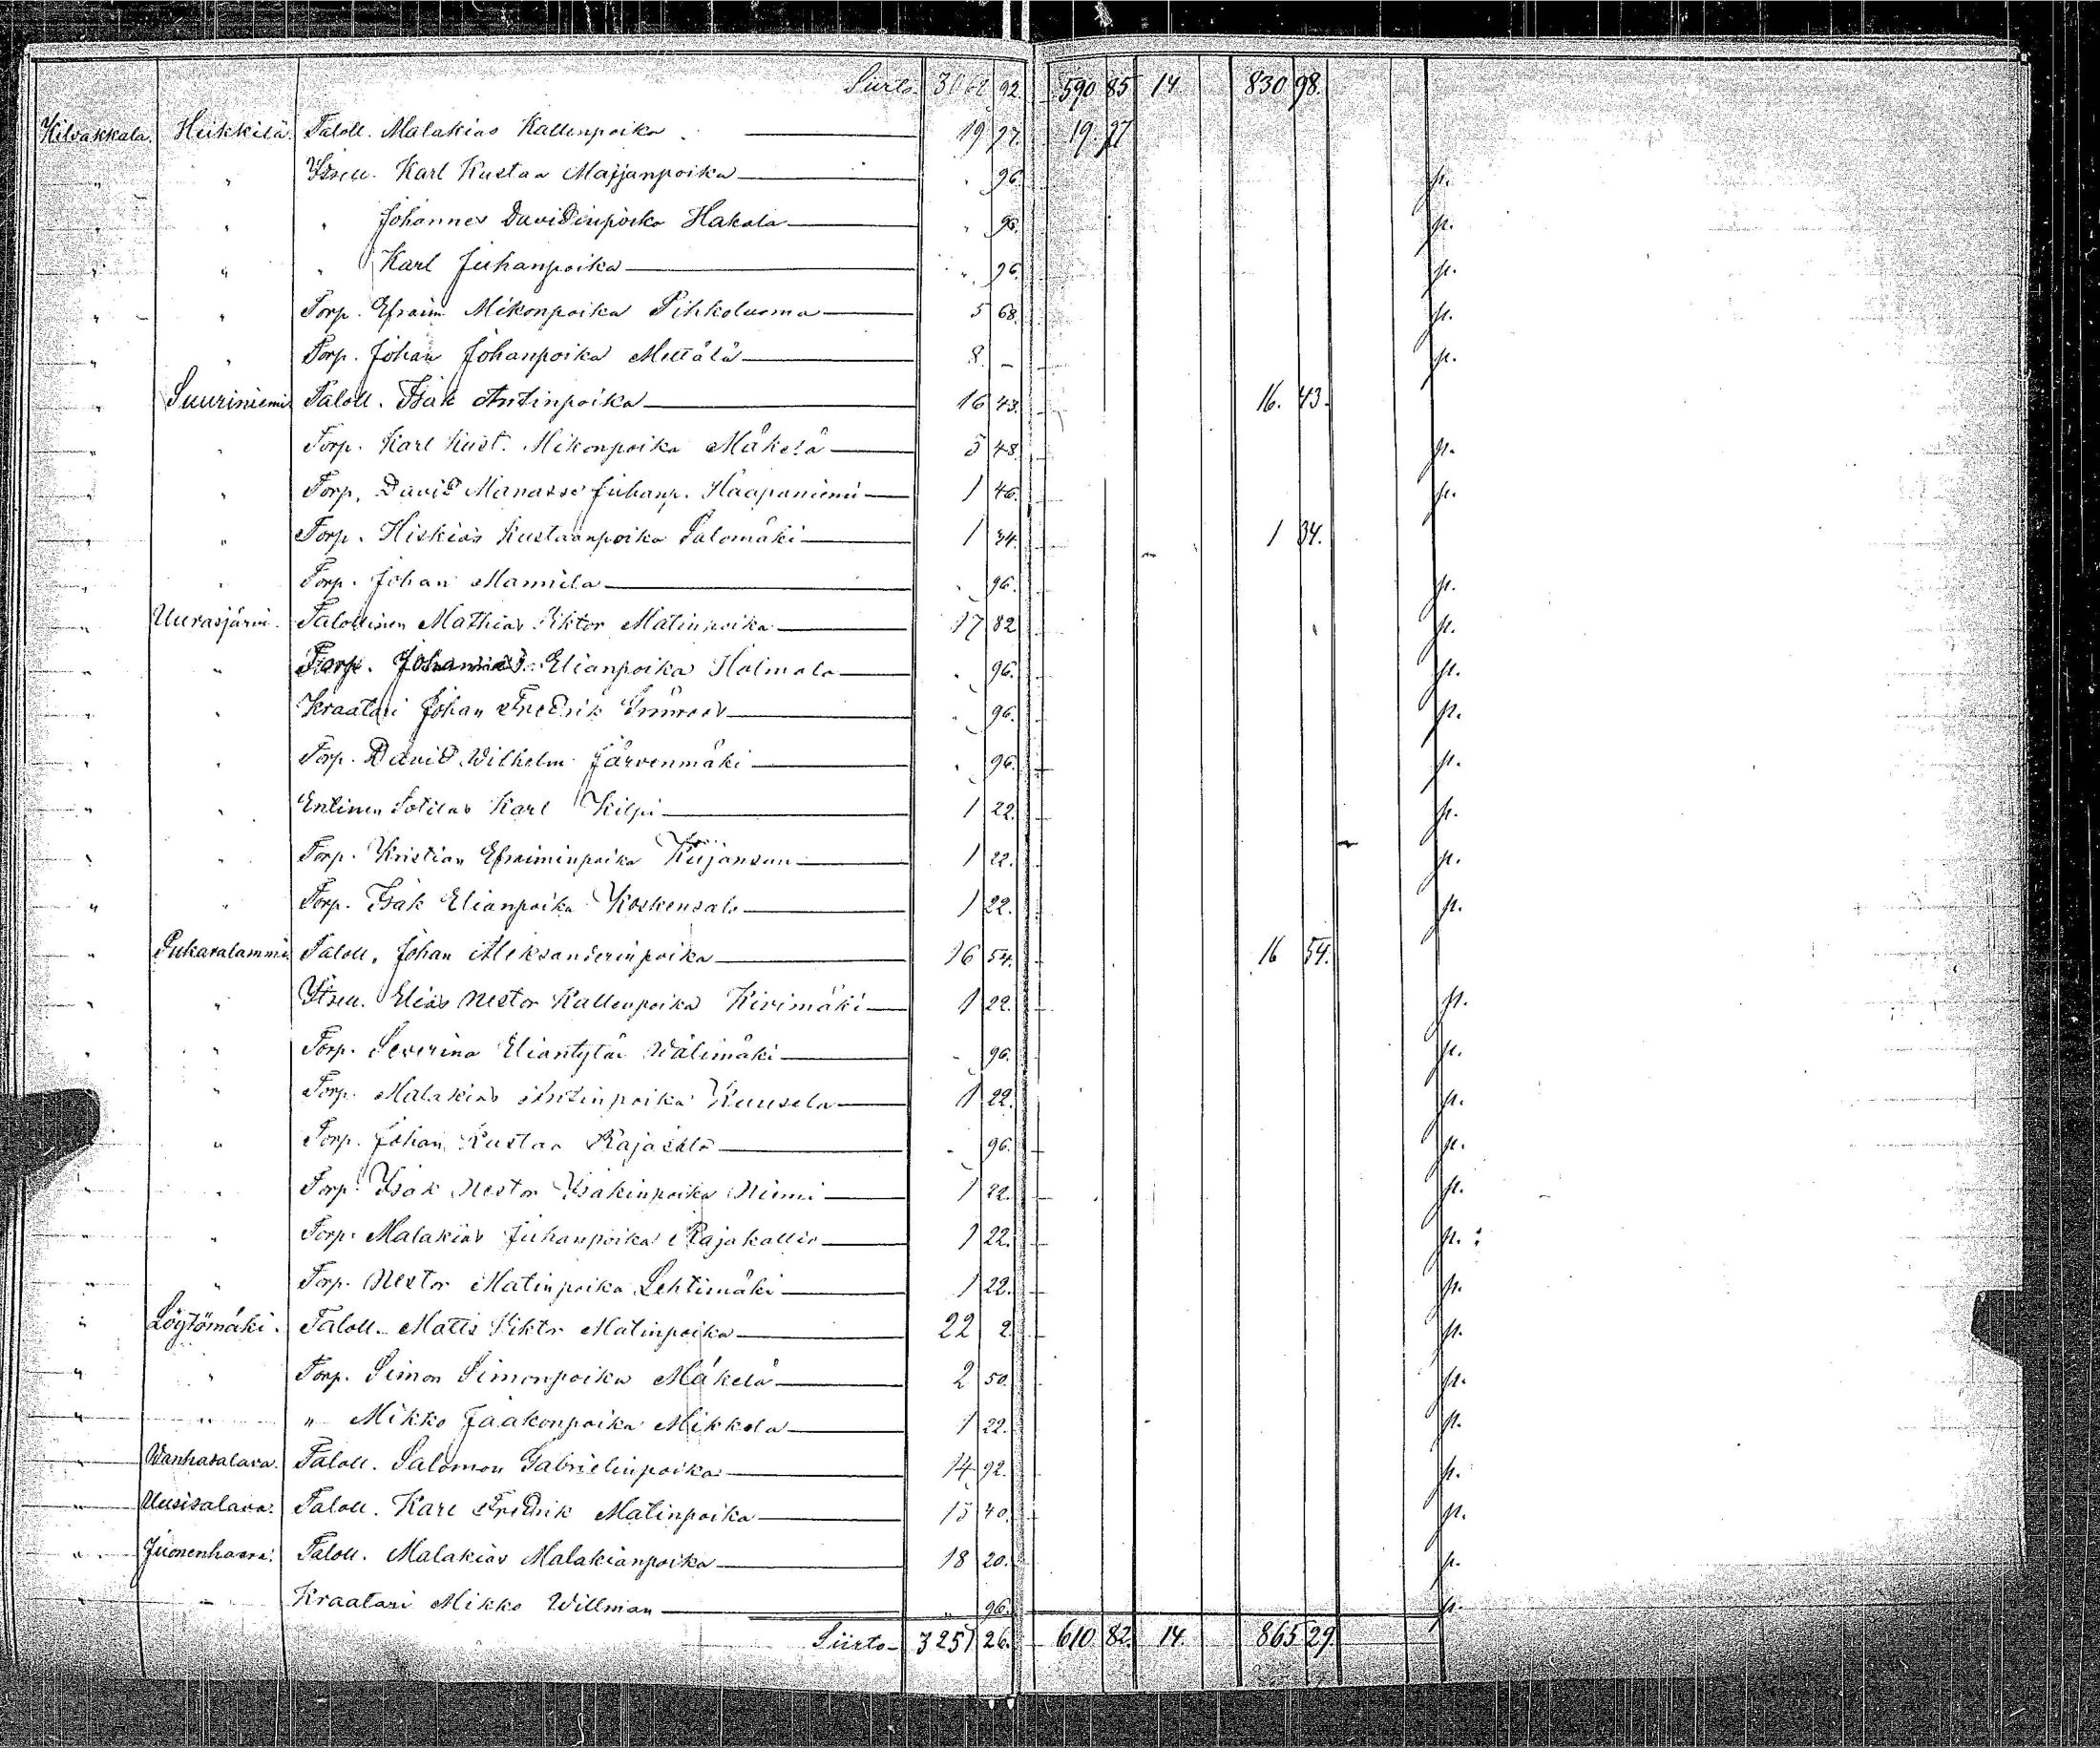 Siirto 3062 92 590 85 14. 830 98.
Kilvakkala. Heikkilä. Taloll. Malakias Kallenpoika 19 97. 19. 97
" " Itsell. Karl Kustaa Maijanpoika " 96. p.
" " " Johannes Davidinpoika Hakala " 96. p.
" " " Karl Juhanpoika " 96. p.
" " Torp. Efraim Mikonpoika Pihkoluoma 5 68. p.
" " Torp. Johan Johanpoika Mettälä 8. - p.
" Suuriniemi Taloll. Isak Antinpoika 16 43. 16. 43.
" " Torp. Karl Kust. Mikonpoika Mäkelä 5 48. p.
" " Torp. David Manasse Juhanp. Haapaniemi 1 46. p.
" " Torp. Hiskias Kustaanpoika Salomäki 1 34. 1 34.
" " Torp. Johan Mannila " 96. p.
" Uurasjärvi. Talollinen Mathias Viktor Matinpoika 17 82 p.
" " Torp. Johannes Elianpoika Holmala " 96. p.
" " Kraatari Johan Fredrik " 96. p.
" " Torp. David Wilhelm Järvenmäki " 96. p.
" " Entinen Sotilas Karl Kilpi 1 22. p.
" " Torp. Kristian Efraiminpoika Kujansuu 1 22. p.
" " Torp. Isak Elianpoika Koskensalo 1 22. p.
" Pukaralammi. Taloll. Johan Aleksanderinpoika 16 54. 16 54.
" " Itsell. Elias Nestor Kallenpoika Kivimäki 1 22. p.
" " Torp. Severina Eliantytär Wälimäki " 96. p.
" Torp. Malakias Antinpoika Kuusela 1 22. p.
" Torp. Johan Kustaa Rajasalo " 96. p.
" " Torp. Isak Nestor Isakinpoika Niemi 1 22. p.
" " Torp. Malakias Juhanpoika Rajakallio 1 22. p.
" " Torp. Nestor Matinpoika Lehtimäki 1 22. p.
" Löytömäki. Taloll. Matts Viktor Matinpoika 22 2. p.
" " Torp. Simon Simonpoika Mäkelä 2 50. p.
" " " Mikko Jaakonpoika Mikkola 1 22. p.
" Wanhasalava. Taloll. Salomon Gabrielinpoika 14 92. p.
" Uusisalava. Taloll. Karl Fredrik Matinpoika 15 40. p.
" Juonenhaara. Taloll. Malakias Malakianpoika 18 20. p.
" " Kraatari Mikko Willman " 96. p.
Siirto 3257 26. 610. 82. 14. 865 29.